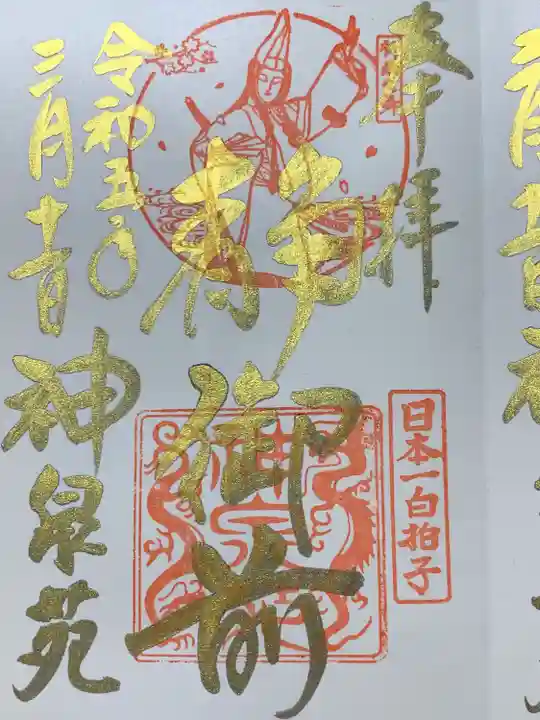 奉拝
静御前
日本一白拍子
令和五年
三月十一日
神泉苑